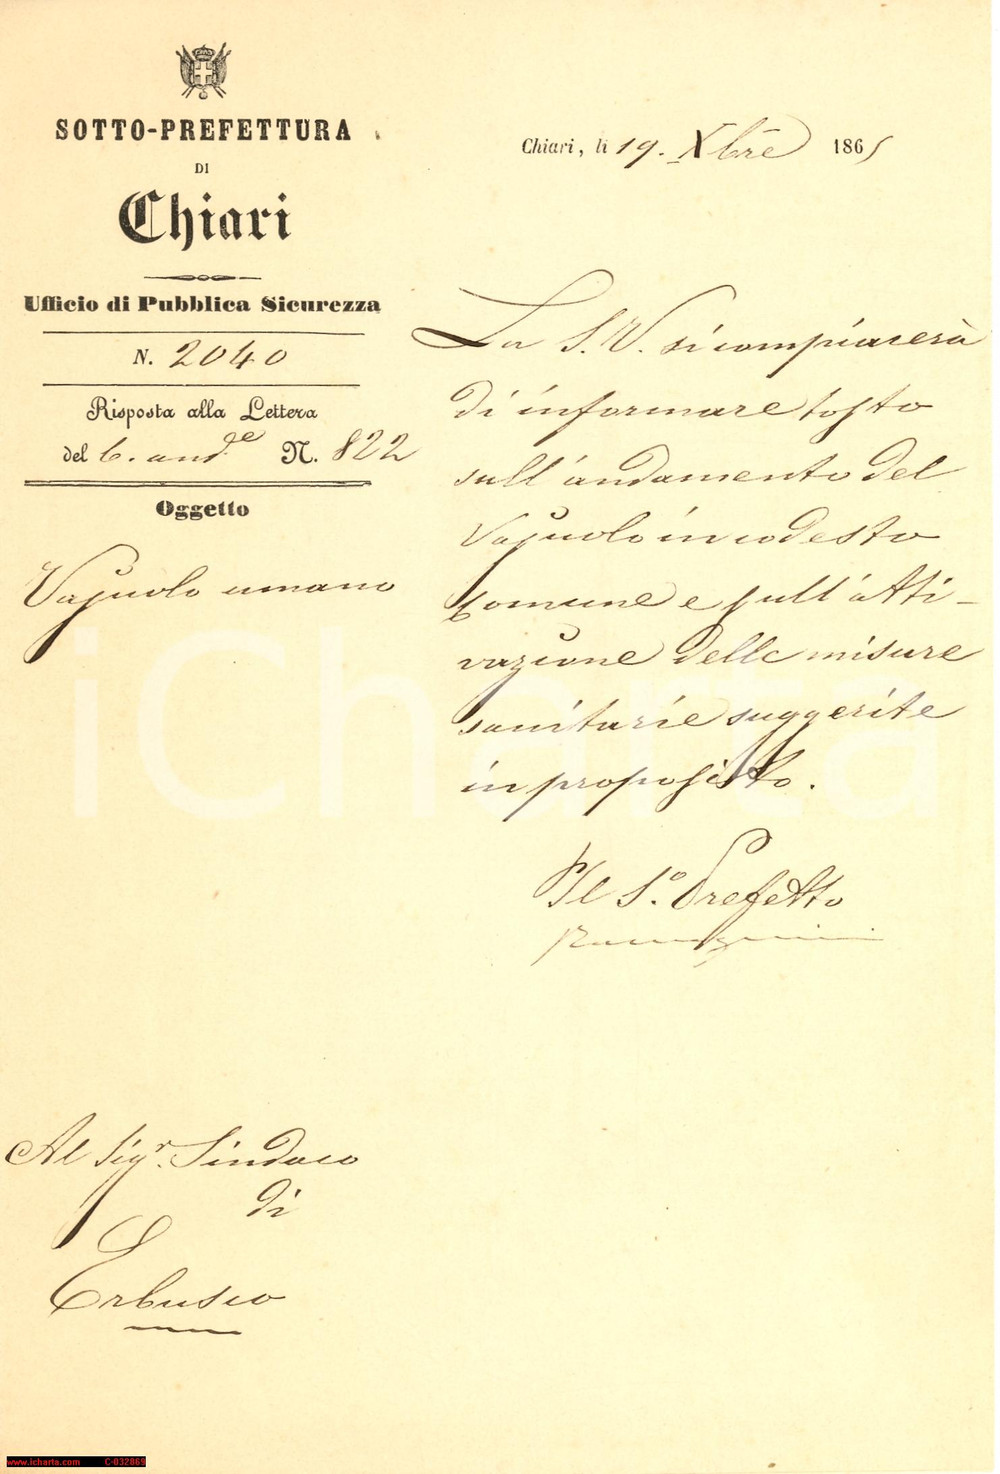 SOTTO-PREFETTURA
DI
Chiari
Ufficio di Pubblica Sicurezza
N. 2040
Risposta alla Lettera
del 6. and.te N. 822
Oggetto
Vajuolo umano
Chiari, li 19. Xbre 1865
La S. V. si compiacerà
di informare tosto
sull'andamento del
Vajuolo in codesto
Comune e sull'atti-
vazione delle misure
sanitarie suggerite
in proposito.
Il S.o Prefetto
Al Sig.r Sindaco
di
Erbusco
iCharta
www.icharta.com C-032869